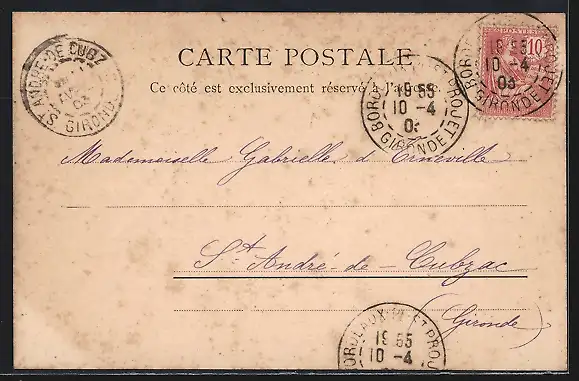 CARTE POSTALE
Ce côté est exclusivement réservé à l'adresse.
ST ANDRE-DE-CUBZ
GIRONDE
POSTES
10
19 55
10 -4
03
GIRONDE
19 55
10 -4
GIRONDE
Mademoiselle Gabrielle d'Erneville
St André-de-Cubzac
(Gironde)
19 55
10 -4